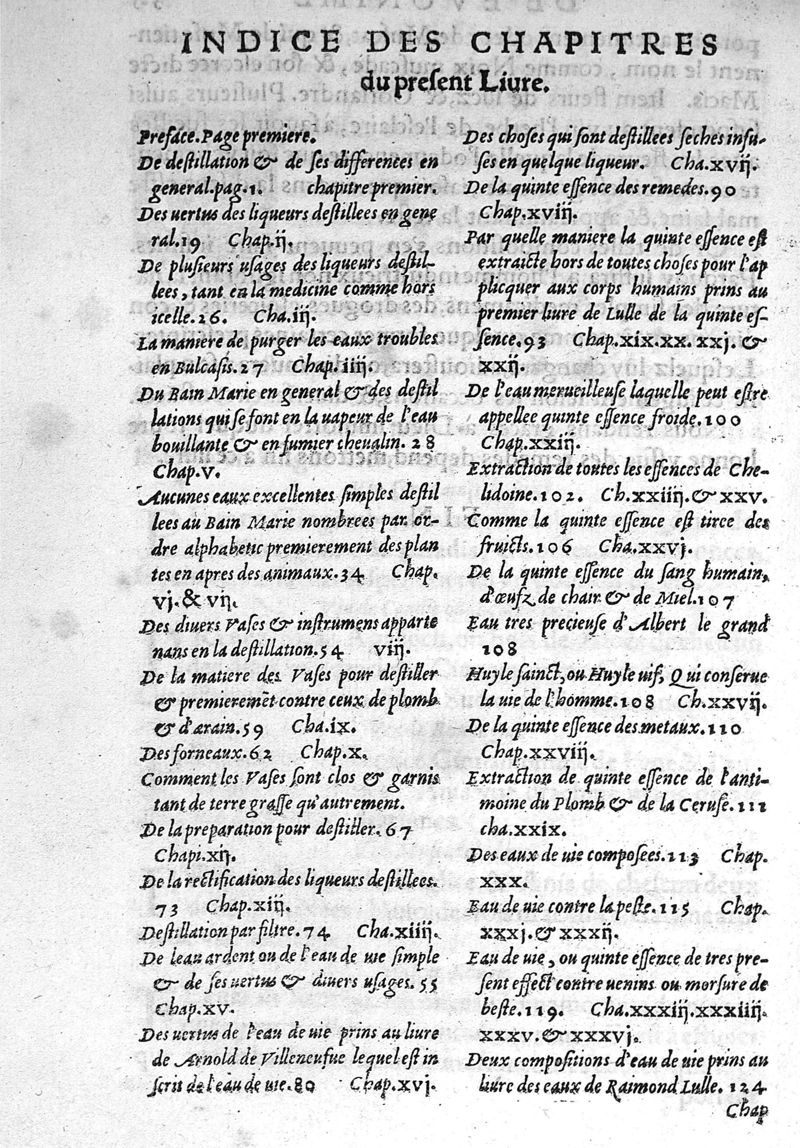 INDICE DES CHAPITRES
du present Liure.
Preface. Page premiere.
De destillation & de ses differences en
general. pag. 1. chapitre premier.
Des uertus des liqueurs destillees en gene
ral. 19 Chap. ij.
De plusieurs usages des liqueurs destil-
lees, tant en la medicine comme hors
icelle. 26. Cha. iij.
La maniere de purger les eaux troubles
en Bulcasis. 27 Chap. iiij.
Du Bain Marie en general & des destil
lations qui se font en la uapeur de l'eau
bouillante & en fumier cheualin. 28
Chap. v.
Aucunes eaux excellentes simples destil
lees au Bain Marie nombrees par or-
dre alphabetic premierement des plan
tes en apres des animaux. 34 Chap.
vj. & vij.
Des diuers Vases & instrumens apparte
nans en la destillation. 54 viij.
De la matiere des Vases pour destiller
& premieremẽt contre ceux de plomb
& d'arain. 59 Cha. ix.
Des forneaux. 62 Chap. x.
Comment les Vases sont clos & garnis
tant de terre grasse qu'autrement.
De la preparation pour destiller. 67
Chapi. xij.
De la rectification des liqueurs destillees.
73 Chap. xiij.
Destillation par filtre. 74 Cha. xiiij.
De leau ardent ou de l'eau de uie simple
& de ses uertus & diuers usages. 55
Chap. xv.
Des uertus de l'eau de uie prins au liure
de Arnold de Villeneufue lequel est in
scrit de l'eau de uie. 80 Chap. xvj.
Des choses qui sont destillees seches infu-
ses en quelque liqueur. Cha. xvij.
De la quinte essence des remedes. 90
Chap. xviij.
Par quelle maniere la quinte essence est
extraicte hors de toutes choses pour l'ap
plicquer aux corps humains prins au
premier liure de Lulle de la quinte es-
sence. 93 Chap. xix. xx. xxj. &
xxij.
De l'eau merueilleuse laquelle peut estre
appellee quinte essence froide. 100
Chap. xxiij.
Extraction de toutes les essences de Che-
lidoine. 102. Ch. xxiiij. & xxv.
Comme la quinte essence est tiree des
fruicts. 106 Cha. xxvj.
De la quinte essence du sang humain,
d'œufz de chair & de Miel. 107
Eau tres precieuse d'Albert le grand
108
Huyle sainct, ou Huyle uif, Qui conserue
la uie de l'homme. 108 Ch. xxvij.
De la quinte essence des metaux. 110
Chap. xxviij.
Extraction de quinte essence de l'anti-
moine du Plomb & de la Ceruse. 111
cha. xxix.
Des eaux de uie composees. 113 Chap.
xxx.
Eau de uie contre la peste. 115 Chap.
xxxj. & xxxij.
Eau de uie, ou quinte essence de tres pre-
sent effect contre uenins ou morsure de
beste. 119. Cha. xxxiij. xxxiiij.
xxxv. & xxxvj.
Deux compositions d'eau de uie prins au
liure des eaux de Raimond Lulle. 124
Chap